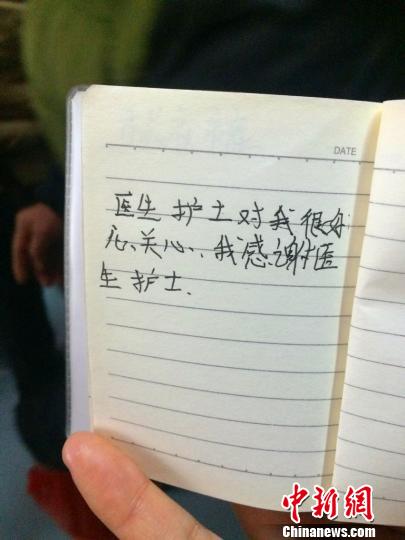 DATE
医生护士对我很好
心关心、我感谢医
生护士.
中新网
Chinanews.com